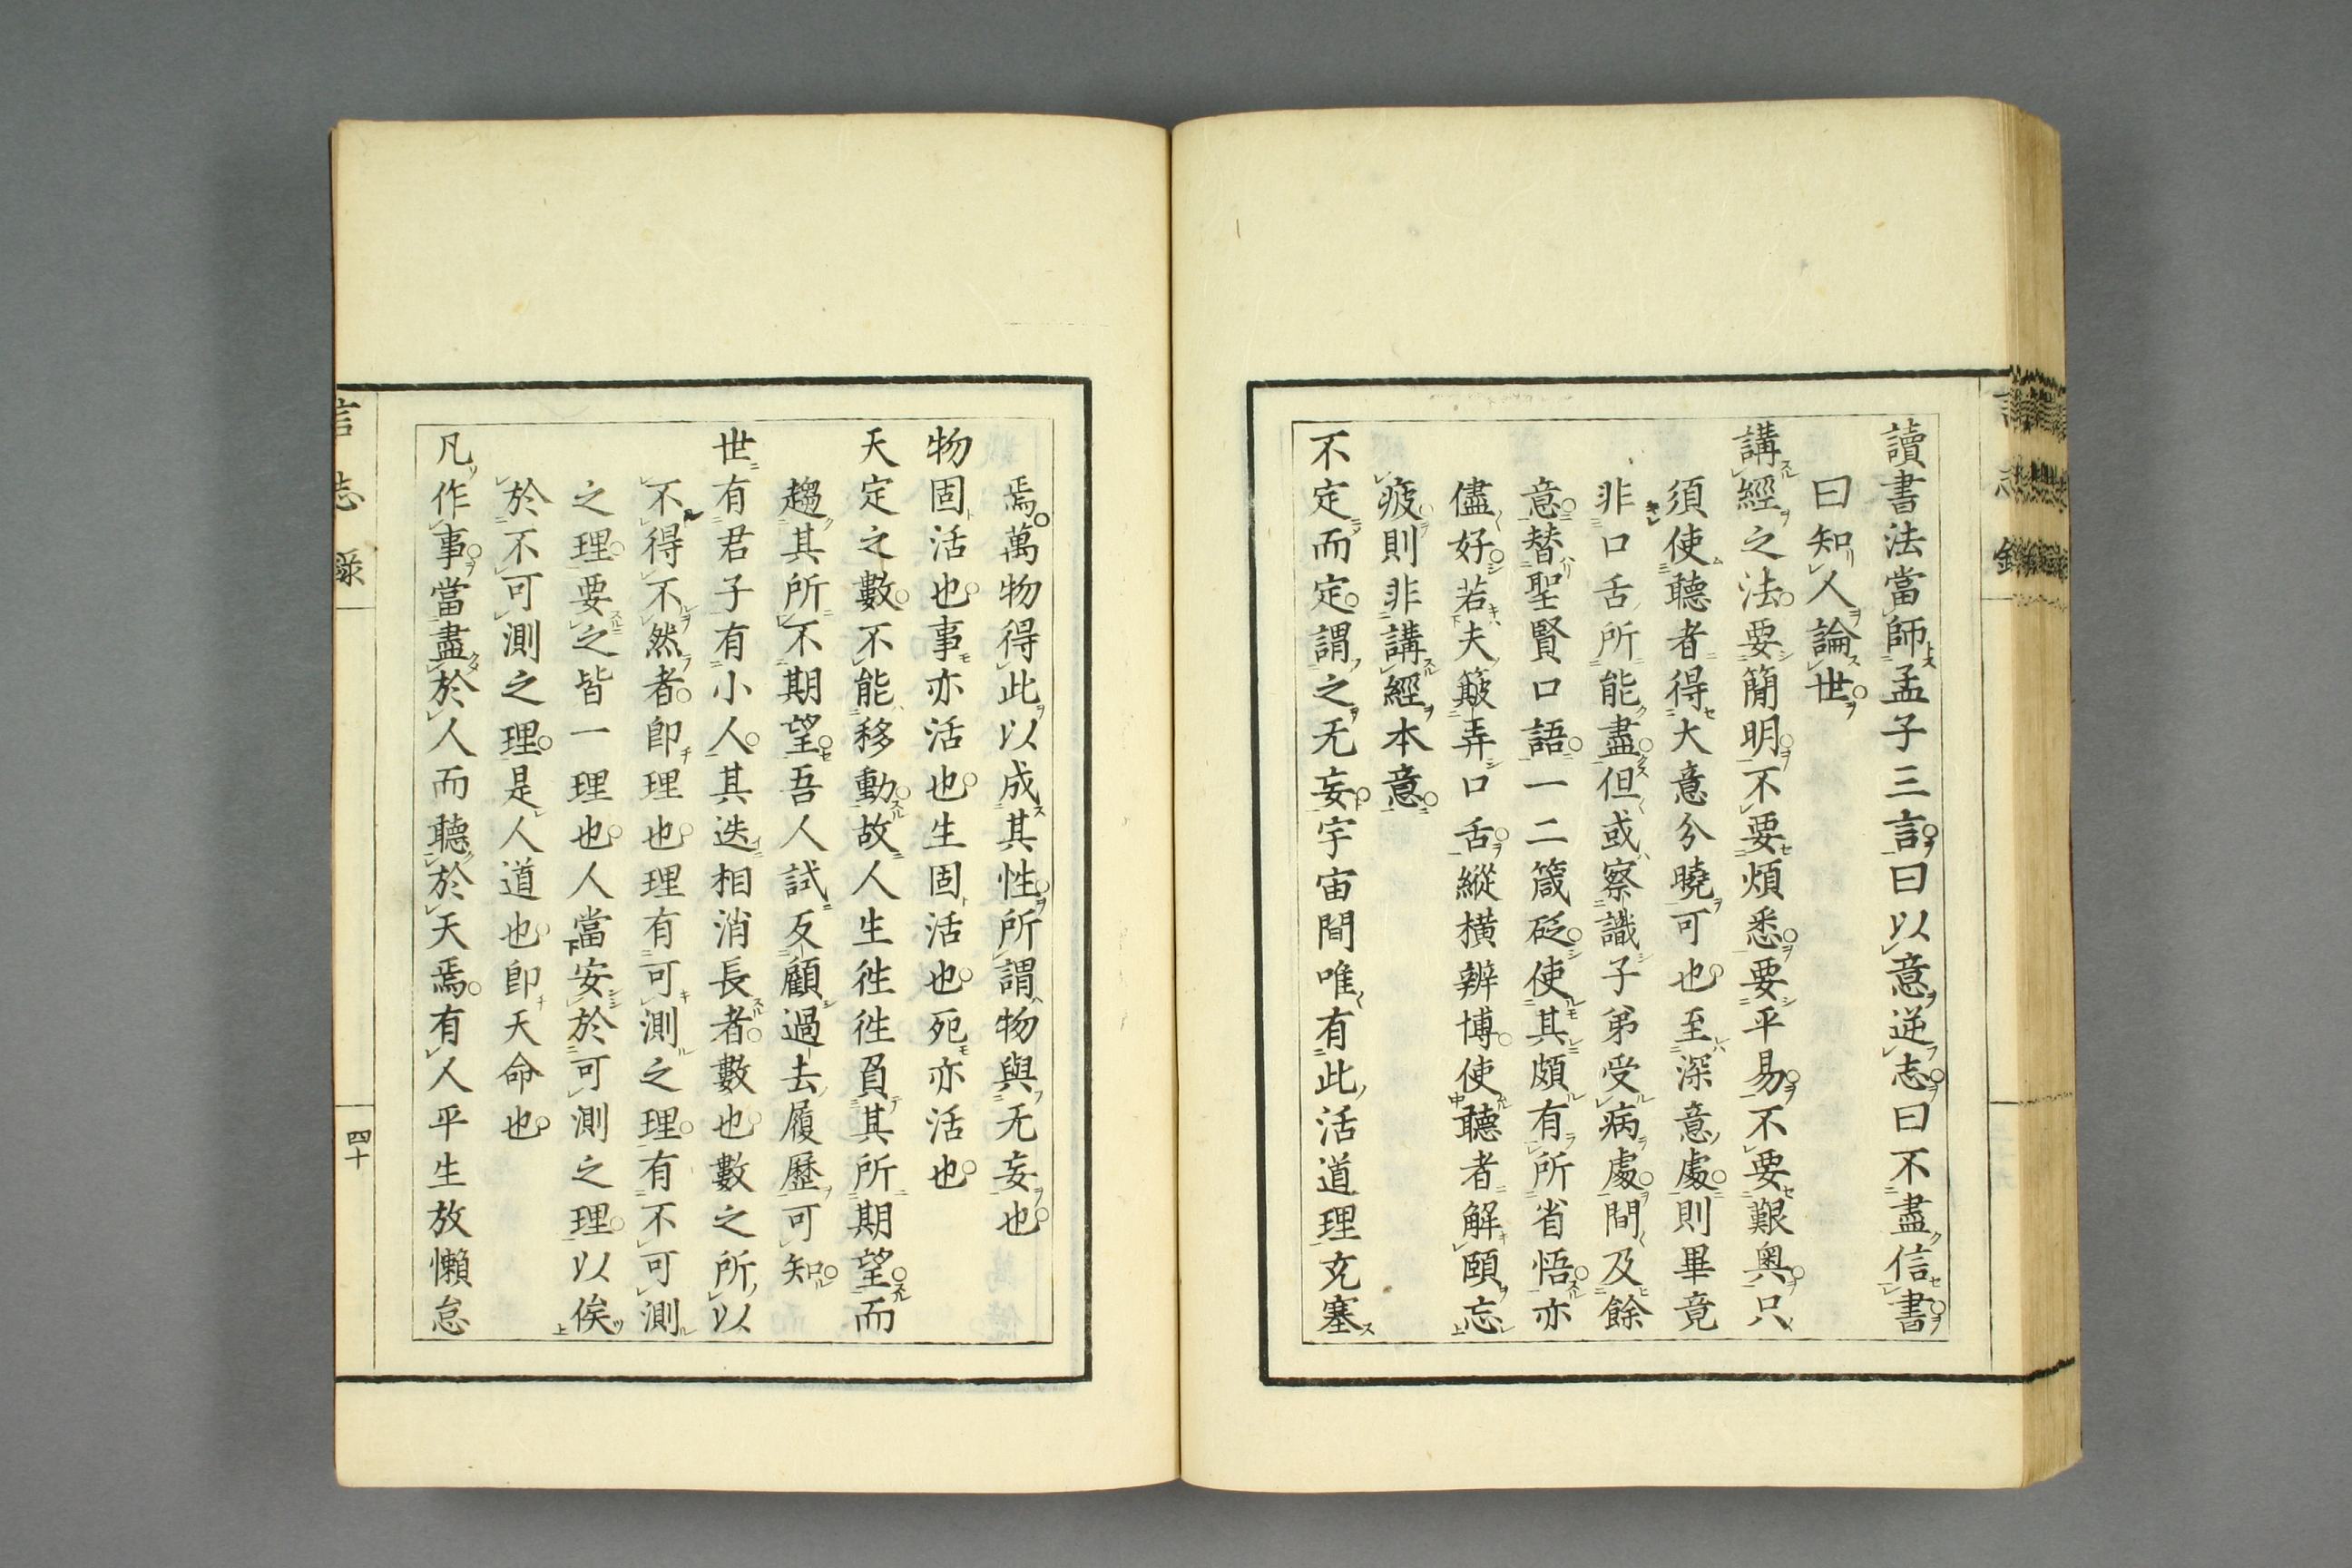 讀書法當師孟子三言曰以意逆志曰不盡信書
曰知人論世
講經之法要簡明不要煩悉要平易不要艱奧只
須使聽者得大意分曉可也至深意處則畢竟
非口舌所能盡但或察識子弟受病處間及餘
意替聖賢口語一二箴砭使其頗有所省悟亦
儘好若夫簸弄口舌縱橫辨博使聽者解頤忘
疲則非講經本意
不定而定謂之无妄宇宙間唯有此活道理充塞
焉萬物得此以成其性所謂物與无妄也
物固活也事亦活也生固活也死亦活也
天定之數不能移動故人生徃徃負其所期望而
趨其所不期望吾人試反顧過去履歷可知
世有君子有小人其迭相消長者數也數之所以
不得不然者卽理也理有可測之理有不可測
之理要之皆一理也人當安於可測之理以俟
於不可測之理是人道也卽天命也
凡作事當盡於人而聽於天焉有人平生放懶怠
言志錄
四十